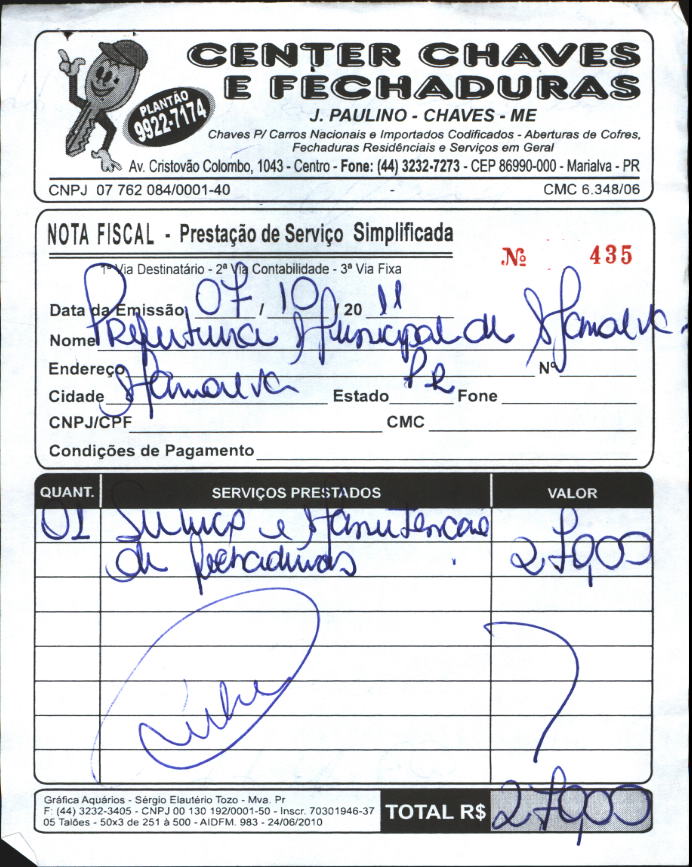 CENTER CHAVES
E FECHADURAS
PLANTÃO
9922-7174
J. PAULINO - CHAVES - ME
Chaves P/ Carros Nacionais e Importados Codificados - Aberturas de Cofres,
Fechaduras Residênciais e Serviços em Geral
Av. Cristovão Colombo, 1043 - Centro - Fone: (44) 3232-7273 - CEP 86990-000 - Marialva - PR
CNPJ 07 762 084/0001-40 - CMC 6.348/06
NOTA FISCAL - Prestação de Serviço Simplificada
Nº 435
1ª Via Destinatário - 2ª Via Contabilidade - 3ª Via Fixa
Data da Emissão 07 / 10 / 20 11
Nome Prefeitura Municipal de Marialva
Endereço Nº
Cidade Marialva Estado PR Fone
CNPJ/CPF CMC
Condições de Pagamento
QUANT. SERVIÇOS PRESTADOS VALOR
01 Serviço e Manutencao
de fechaduras 270,00
Gráfica Aquários - Sérgio Elautério Tozo - Mva. Pr
F: (44) 3232-3405 - CNPJ 00 130 192/0001-50 - Inscr. 70301946-37
05 Talões - 50x3 de 251 à 500 - AIDFM. 983 - 24/06/2010
TOTAL R$ 270,00